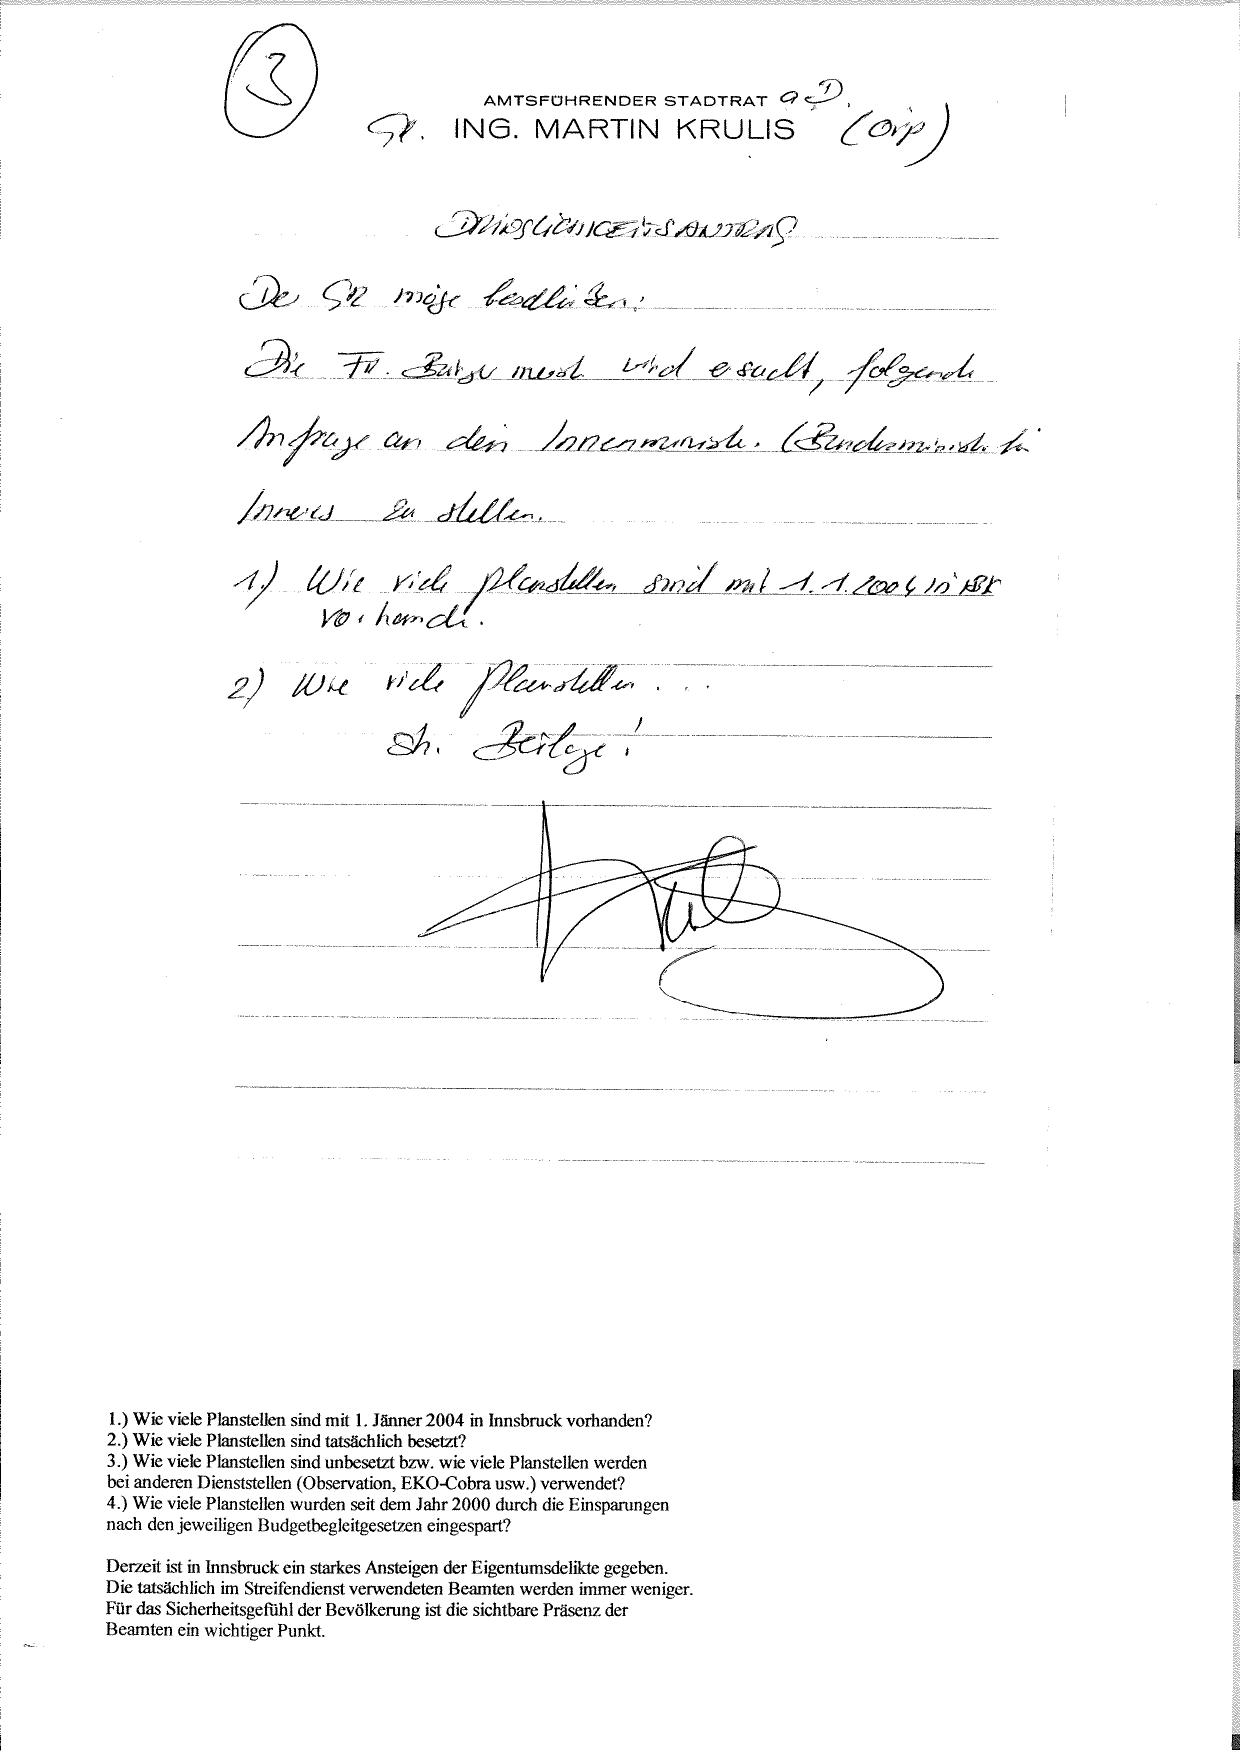 3
AMTSFÜHRENDER STADTRAT a D.
GR. ING. MARTIN KRULIS (övp)
DRINGLICHKEITSANTRAG
Der GR möge beschließen:
Die Fr. Bürgermeist. wird ersucht, folgende
Anfrage an den Innenminist. (Bundesminist. für
Inneres zu stellen.
1.) Wie viele Planstellen sind mit 1.1.2004 in IBK
vorhanden.
2) Wie viele Planstellen . . .
Sh. Beilage!
1.) Wie viele Planstellen sind mit 1. Jänner 2004 in Innsbruck vorhanden?
2.) Wie viele Planstellen sind tatsächlich besetzt?
3.) Wie viele Planstellen sind unbesetzt bzw. wie viele Planstellen werden
bei anderen Dienststellen (Observation, EKO-Cobra usw.) verwendet?
4.) Wie viele Planstellen wurden seit dem Jahr 2000 durch die Einsparungen
nach den jeweiligen Budgetbegleitgesetzen eingespart?
Derzeit ist in Innsbruck ein starkes Ansteigen der Eigentumsdelikte gegeben.
Die tatsächlich im Streifendienst verwendeten Beamten werden immer weniger.
Für das Sicherheitsgefühl der Bevölkerung ist die sichtbare Präsenz der
Beamten ein wichtiger Punkt.